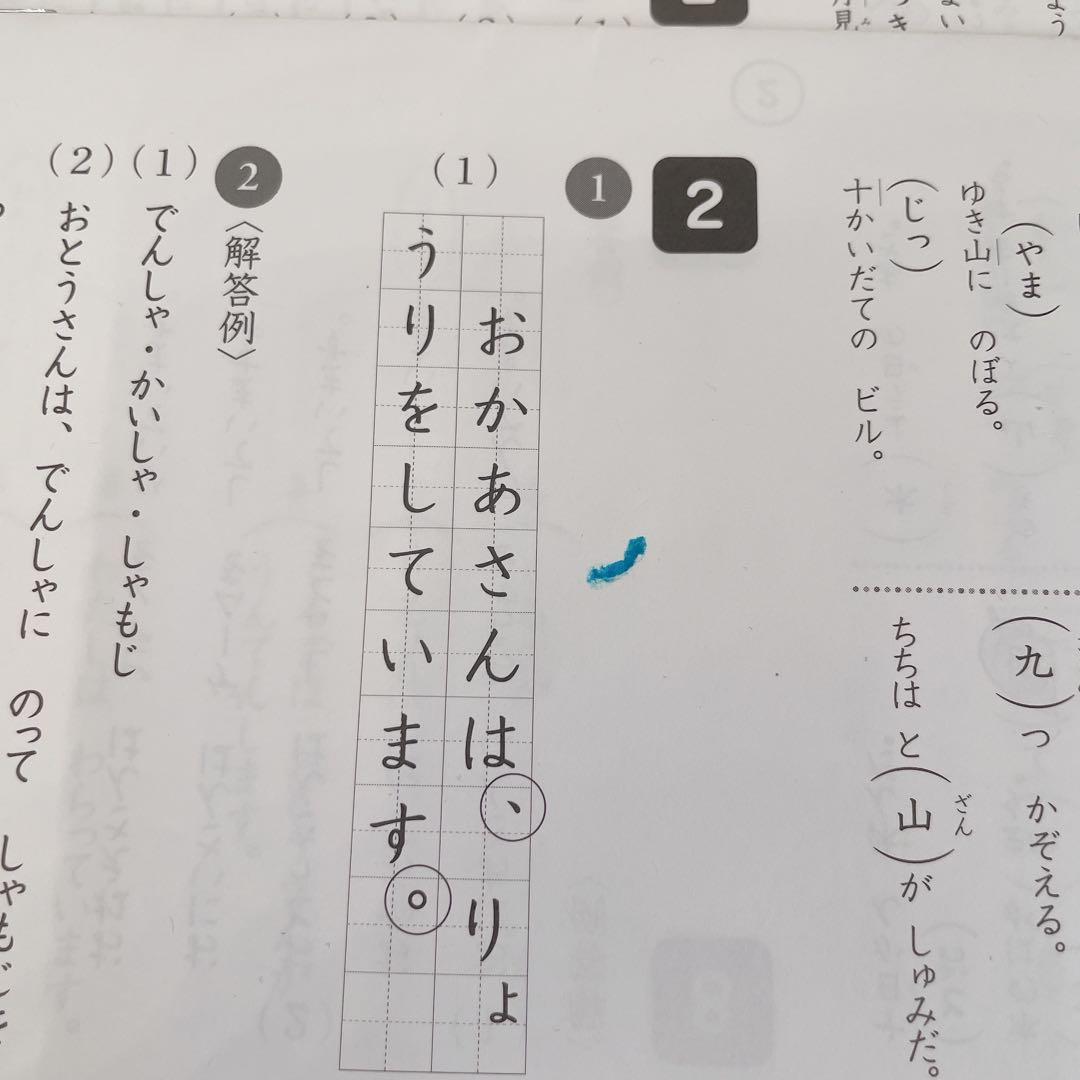 (やま)
ゆき山に のぼる。
(じっ)
十かいだての ビル。
(九)つ かぞえる。
ざん
ちちは と(山)が しゅみだ。
2
1
(1)
おかあさんは、りょ
うりをしています。
2
〈解答例〉
(1)
でんしゃ・かいしゃ・しゃもじ
(2)
おとうさんは、でんしゃに のって